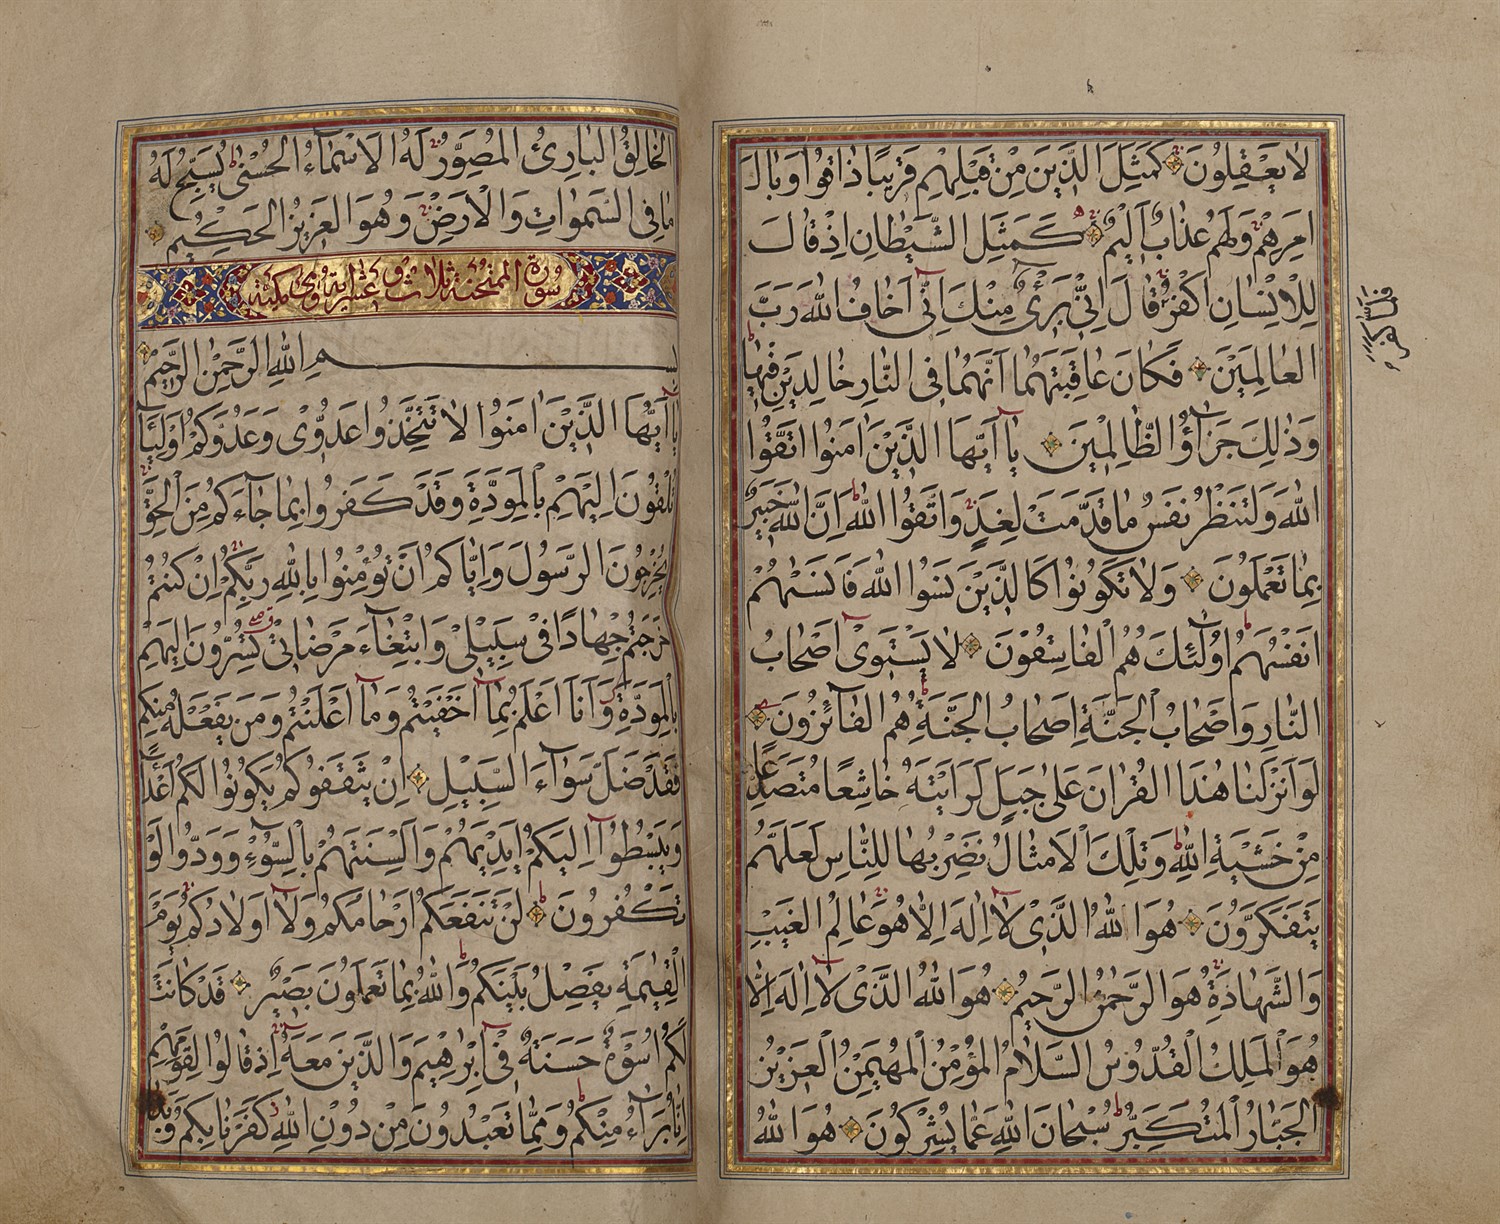 لَا يَعْقِلُونَ كَمَثَلِ الَّذِينَ مِنْ قَبْلِهِمْ قَرِيبًا ذَاقُوا وَبَالَ
اَمْرِهِمْ وَلَهُمْ عَذَابٌ اَلِيمٌ كَمَثَلِ الشَّيْطَانِ اِذْ قَالَ
لِلْاِنْسَانِ اكْفُرْ قَالَ اِنِّي بَرِيءٌ مِنْكَ اِنِّي اَخَافُ اللهَ رَبَّ
الْعَالَمِينَ فَكَانَ عَاقِبَتَهُمَا اَنَّهُمَا فِي النَّارِ خَالِدَيْنِ فِيهَا
وَذٰلِكَ جَزَاؤُ الظَّالِمِينَ يَا اَيُّهَا الَّذِينَ اٰمَنُوا اتَّقُوا
اللهَ وَلْتَنْظُرْ نَفْسٌ مَا قَدَّمَتْ لِغَدٍ وَاتَّقُوا اللهَ اِنَّ اللهَ خَبِيرٌ
بِمَا تَعْمَلُونَ وَلَا تَكُونُوا كَالَّذِينَ نَسُوا اللهَ فَاَنْسٰيهُمْ
اَنْفُسَهُمْ اُولٰئِكَ هُمُ الْفَاسِقُونَ لَا يَسْتَوِي اَصْحَابُ
النَّارِ وَاَصْحَابُ الْجَنَّةِ اَصْحَابُ الْجَنَّةِ هُمُ الْفَائِزُونَ
لَوْ اَنْزَلْنَا هٰذَا الْقُرْاٰنَ عَلٰى جَبَلٍ لَرَاَيْتَهُ خَاشِعًا مُتَصَدِّعًا
مِنْ خَشْيَةِ اللهِ وَتِلْكَ الْاَمْثَالُ نَضْرِبُهَا لِلنَّاسِ لَعَلَّهُمْ
يَتَفَكَّرُونَ هُوَ اللهُ الَّذِي لَا اِلٰهَ اِلَّا هُوَ عَالِمُ الْغَيْبِ
وَالشَّهَادَةِ هُوَ الرَّحْمٰنُ الرَّحِيمُ هُوَ اللهُ الَّذِي لَا اِلٰهَ اِلَّا
هُوَ الْمَلِكُ الْقُدُّوسُ السَّلَامُ الْمُؤْمِنُ الْمُهَيْمِنُ الْعَزِيزُ
الْجَبَّارُ الْمُتَكَبِّرُ سُبْحَانَ اللهِ عَمَّا يُشْرِكُونَ هُوَ اللهُ
فَلَمَّا كَفَرَ
الْخَالِقُ الْبَارِئُ الْمُصَوِّرُ لَهُ الْاَسْمَاءُ الْحُسْنٰى يُسَبِّحُ لَهُ
مَا فِي السَّمٰوَاتِ وَالْاَرْضِ وَهُوَ الْعَزِيزُ الْحَكِيمُ
سورة الممتحنة ثلاث و عشر اية وهي مكية
بسم اللهِ الرَّحْمٰنِ الرَّحِيمِ
يَا اَيُّهَا الَّذِينَ اٰمَنُوا لَا تَتَّخِذُوا عَدُوِّي وَعَدُوَّكُمْ اَوْلِيَاءَ
تُلْقُونَ اِلَيْهِمْ بِالْمَوَدَّةِ وَقَدْ كَفَرُوا بِمَا جَاءَكُمْ مِنَ الْحَقِّ
يُخْرِجُونَ الرَّسُولَ وَاِيَّاكُمْ اَنْ تُؤْمِنُوا بِاللهِ رَبِّكُمْ اِنْ كُنْتُمْ
خَرَجْتُمْ جِهَادًا فِي سَبِيلِي وَابْتِغَاءَ مَرْضَاتِي تُسِرُّونَ اِلَيْهِمْ
بِالْمَوَدَّةِ وَاَنَا اَعْلَمُ بِمَا اَخْفَيْتُمْ وَمَا اَعْلَنْتُمْ وَمَنْ يَفْعَلْهُ مِنْكُمْ
فَقَدْ ضَلَّ سَوَاءَ السَّبِيلِ اِنْ يَثْقَفُوكُمْ يَكُونُوا لَكُمْ اَعْدَاءً
وَيَبْسُطُوا اِلَيْكُمْ اَيْدِيَهُمْ وَاَلْسِنَتَهُمْ بِالسُّوءِ وَوَدُّوا لَوْ
تَكْفُرُونَ لَنْ تَنْفَعَكُمْ اَرْحَامُكُمْ وَلَا اَوْلَادُكُمْ يَوْمَ
الْقِيٰمَةِ يَفْصِلُ بَيْنَكُمْ وَاللهُ بِمَا تَعْمَلُونَ بَصِيرٌ قَدْ كَانَتْ
لَكُمْ اُسْوَةٌ حَسَنَةٌ فِي اِبْرٰهِيمَ وَالَّذِينَ مَعَهُ اِذْ قَالُوا لِقَوْمِهِمْ
اِنَّا بُرَآءُ مِنْكُمْ وَمِمَّا تَعْبُدُونَ مِنْ دُونِ اللهِ كَفَرْنَا بِكُمْ وَبَدَا